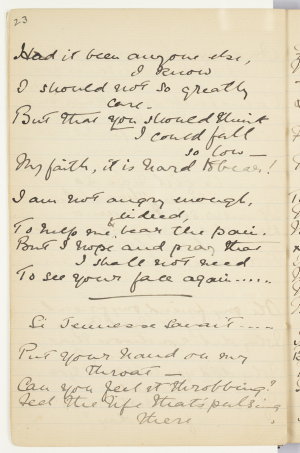 23
Had it been anyone else,
I know
I should not so greatly
care.
But that you should think
I could fall
so low —
My faith, it is hard to bear!
I am not angry enough,
indeed,
To help me bear the pain.
But I hope and pray that
I shall not need
To see your face again......
Si Jeunesse Savait....
Put your hand on my
throat —
Can you feel it throbbing?
Feel the life that's pulsing
there